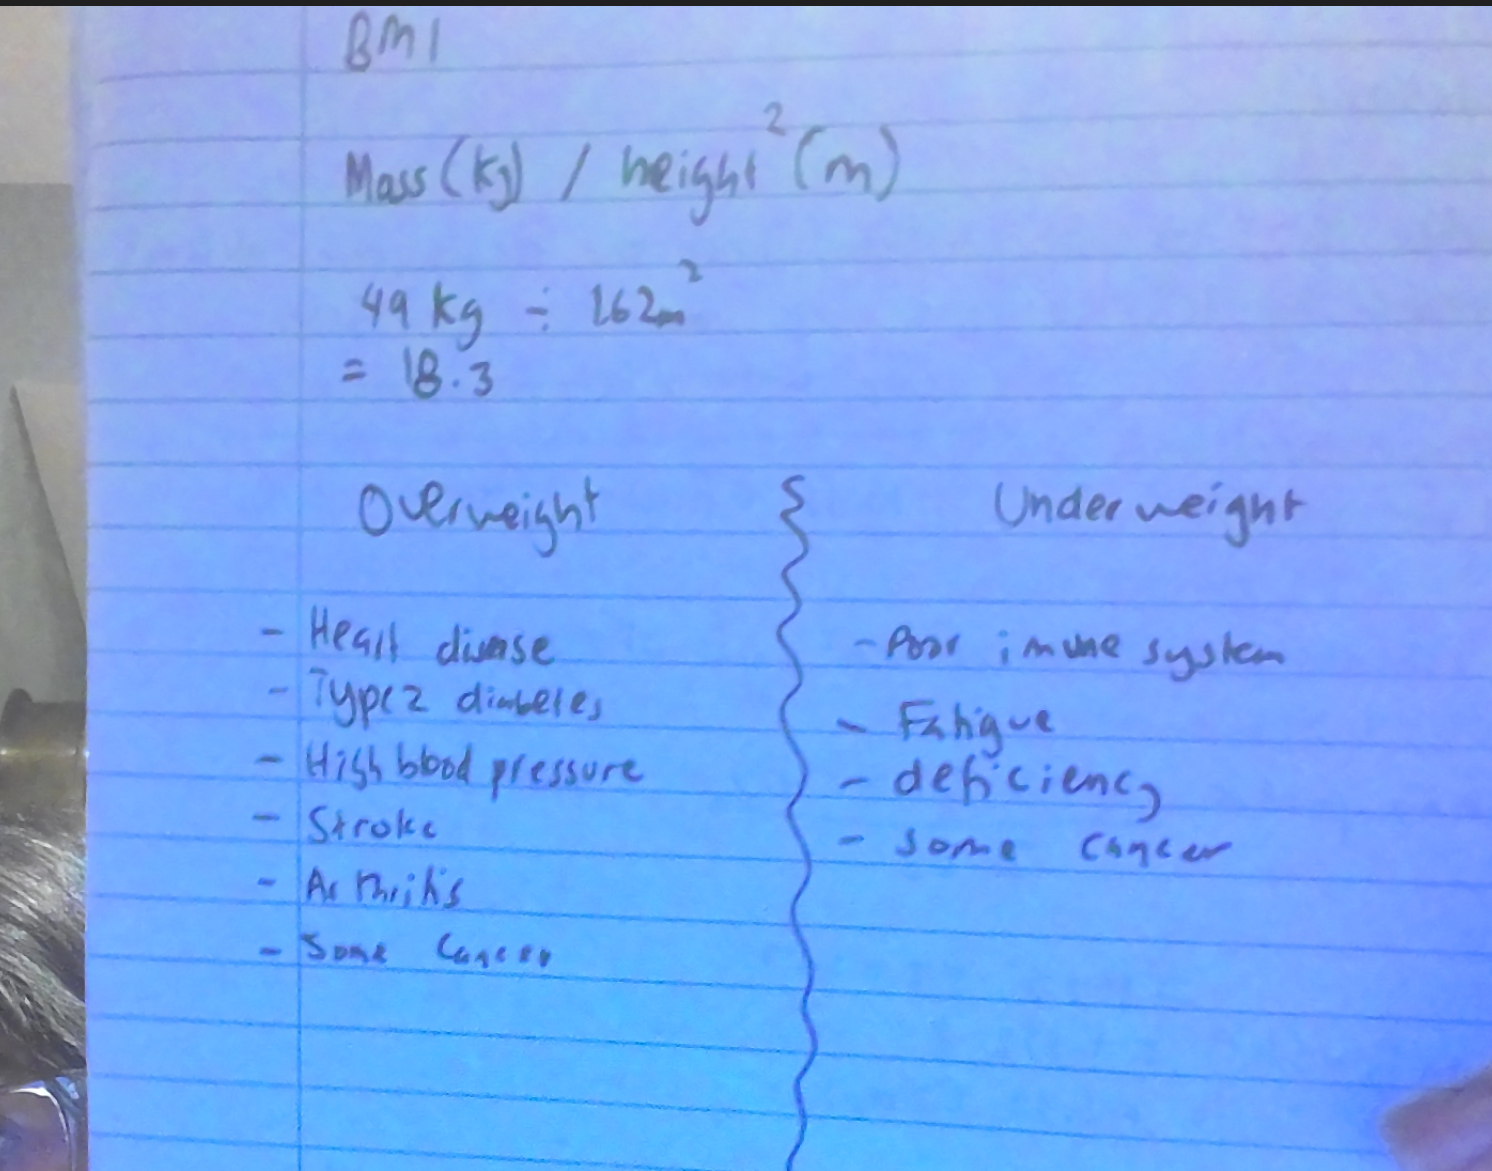 BMI
Mass (kg) / height² (m)
49 kg ÷ 162m²
= 18.3
Overweight
- Heart disease
- Type 2 diabetes
- High blood pressure
- Stroke
- Arthritis
- Some cancer
Underweight
- Poor imune system
- Fatigue
- deficiency
- some cancer